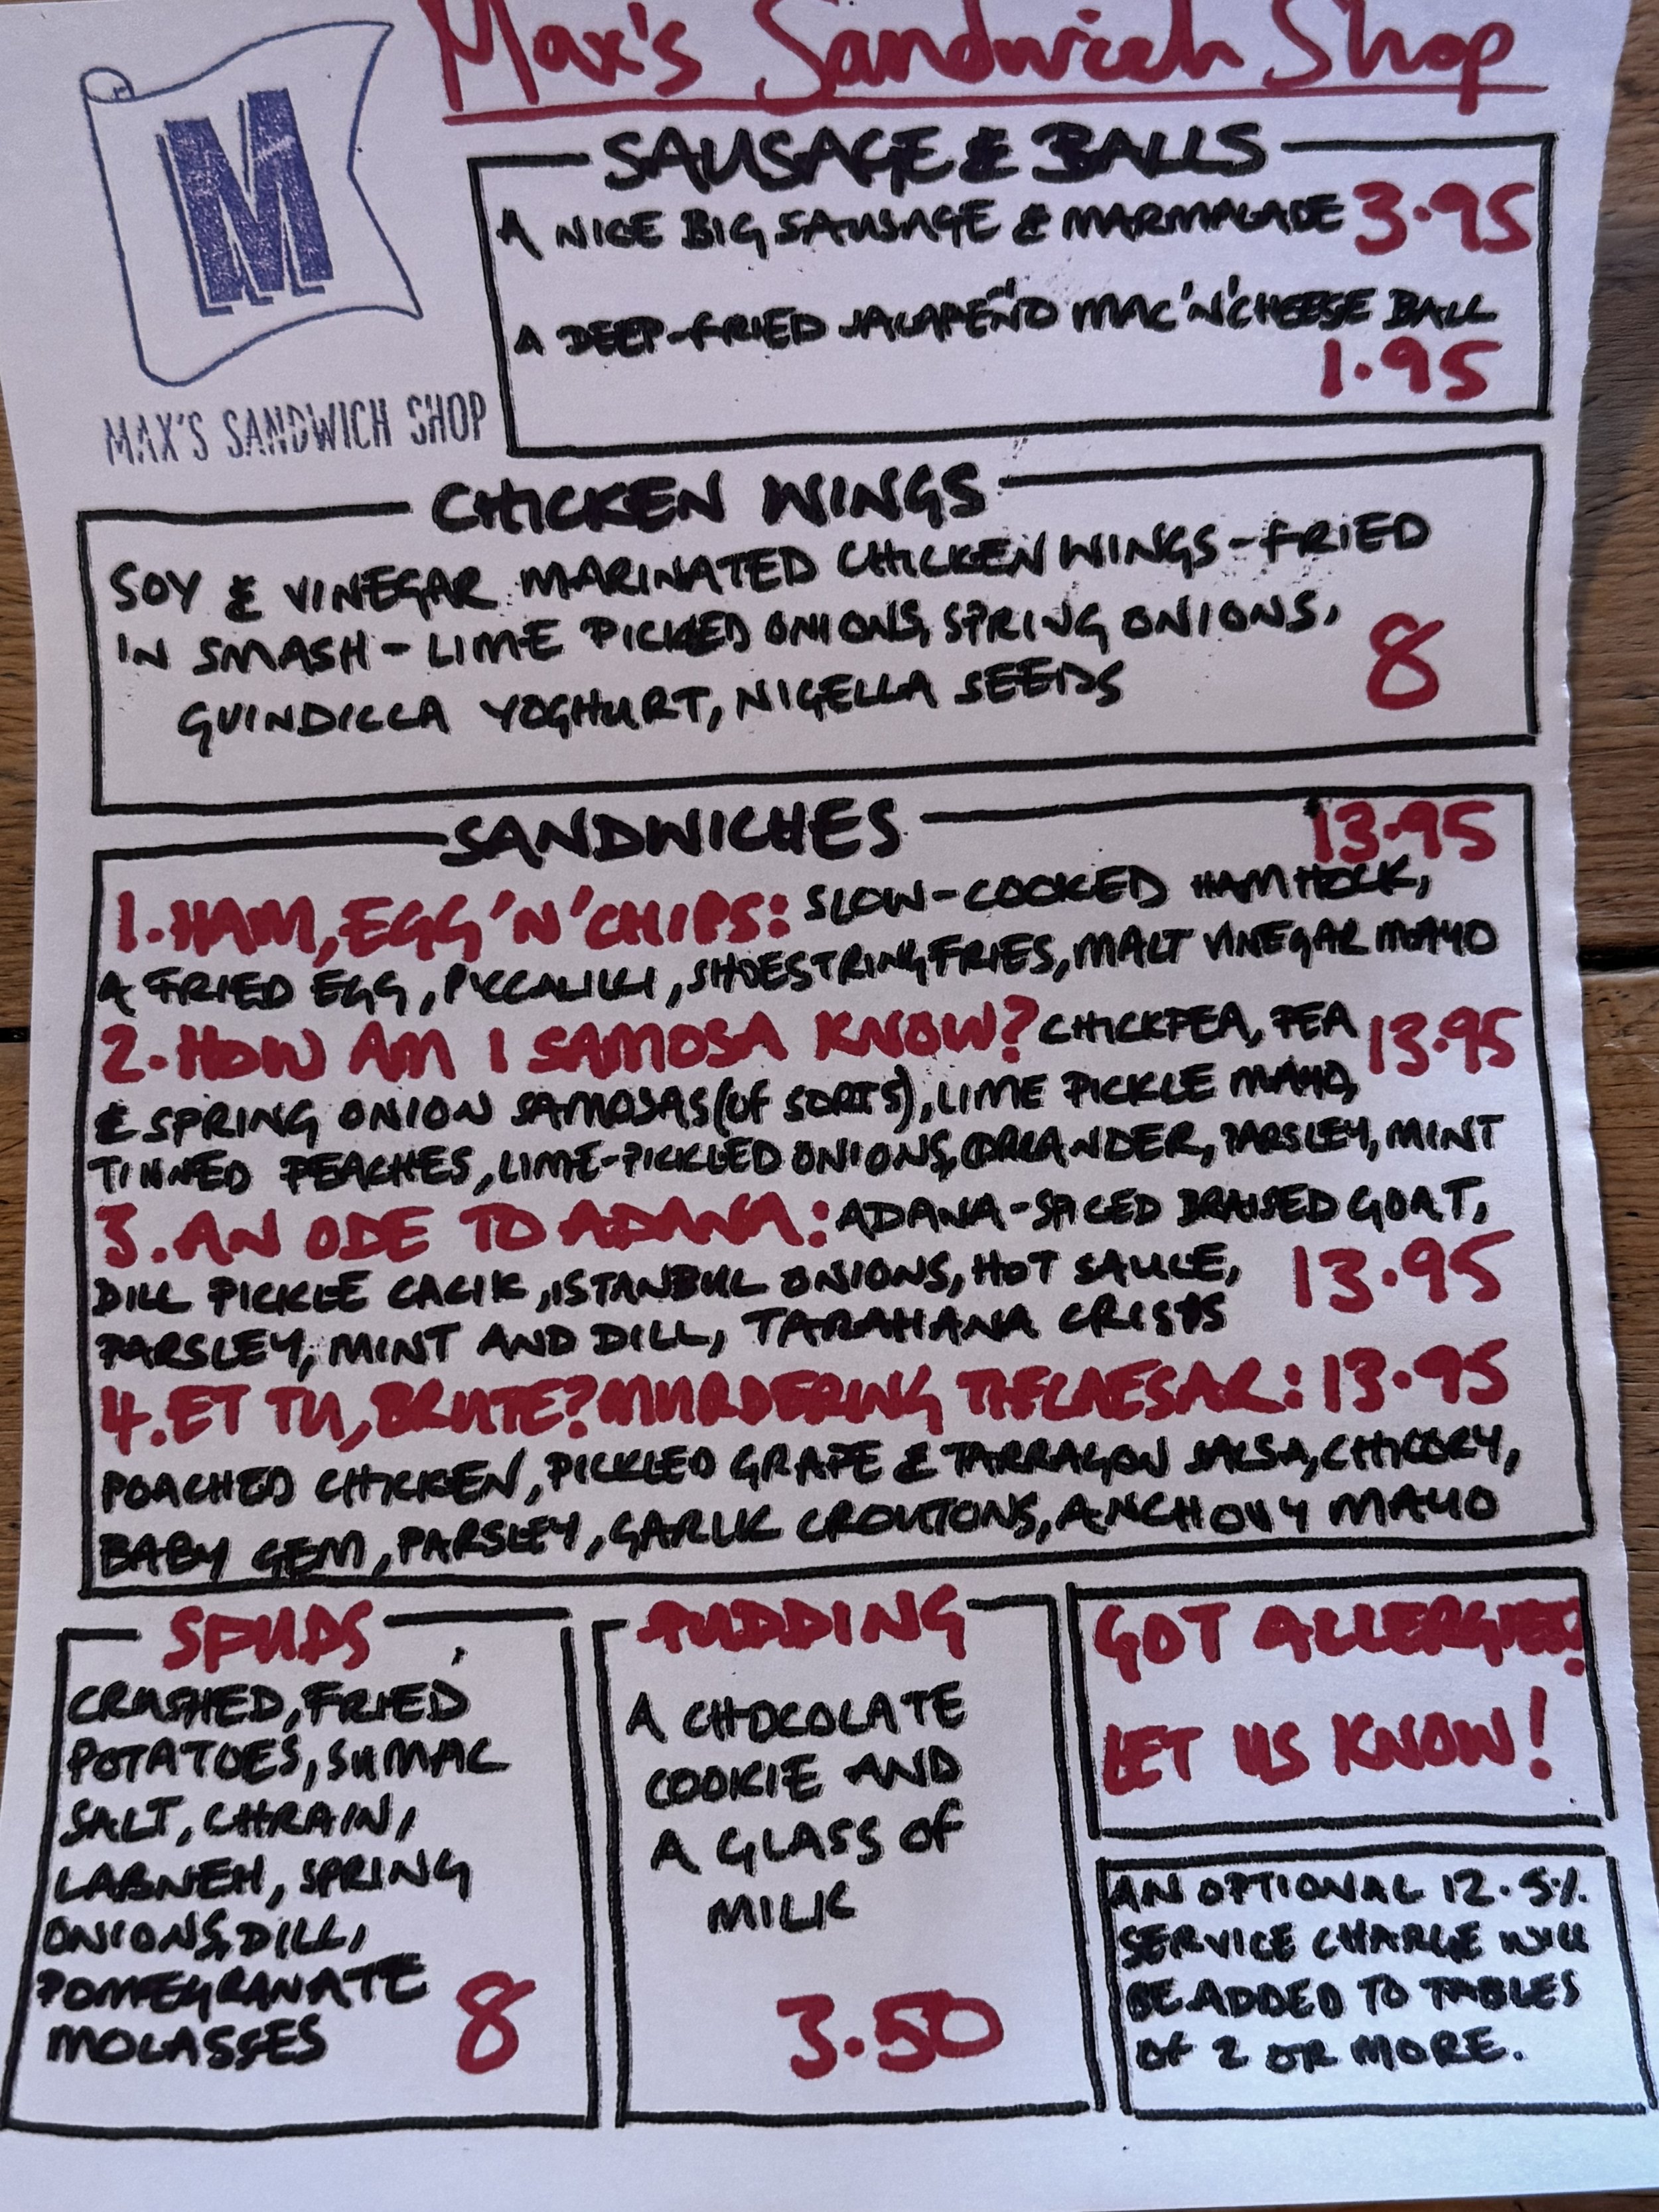 Max's Sandwich Shop
M
MAX'S SANDWICH SHOP
SAUSAGE & BALLS
A NICE BIG SAUSAGE & MARMALADE 3.95
A DEEP-FRIED JALAPEÑO MAC'N'CHEESE BALL
1.95
CHICKEN WINGS
SOY & VINEGAR MARINATED CHICKEN WINGS - FRIED
IN SMASH - LIME PICKED ONIONS, SPRING ONIONS,
GUINDILLA YOGHURT, NIGELLA SEEDS
8
SANDWICHES
13.95
1. HAM, EGG 'N' CHIPS: SLOW-COOKED HAM HOCK,
A FRIED EGG, PICCALILLI, SHOESTRING FRIES, MALT VINEGAR MAYO
2. HOW AM I SAMOSA KNOW? CHICKPEA, PEA 13.95
& SPRING ONION SAMOSAS (OF SORTS), LIME PICKLE MAYO,
TINNED PEACHES, LIME-PICKLED ONIONS, CORIANDER, PARSLEY, MINT
3. AN ODE TO ADANA: ADANA-SPICED BRAISED GOAT,
DILL PICKLE CACIK, ISTANBUL ONIONS, HOT SAUCE, 13.95
PARSLEY, MINT AND DILL, TARAHANA CRISPS
4. ET TU, BRUTE? MURDERING THE CAESAR: 13.95
POACHED CHICKEN, PICKLED GRAPE & TARRAGON SALSA, CHICORY,
BABY GEM, PARSLEY, GARLIC CROUTONS, ANCHOVY MAYO
SPUDS
CRUSHED, FRIED
POTATOES, SUMAC
SALT, CHRAIN,
LABNEH, SPRING
ONIONS, DILL,
POMEGRANATE
MOLASSES 8
PUDDING
A CHOCOLATE
COOKIE AND
A GLASS OF
MILK
3.50
GOT ALLERGIES?
LET US KNOW!
AN OPTIONAL 12.5%
SERVICE CHARGE WILL
BE ADDED TO TABLES
OF 2 OR MORE.